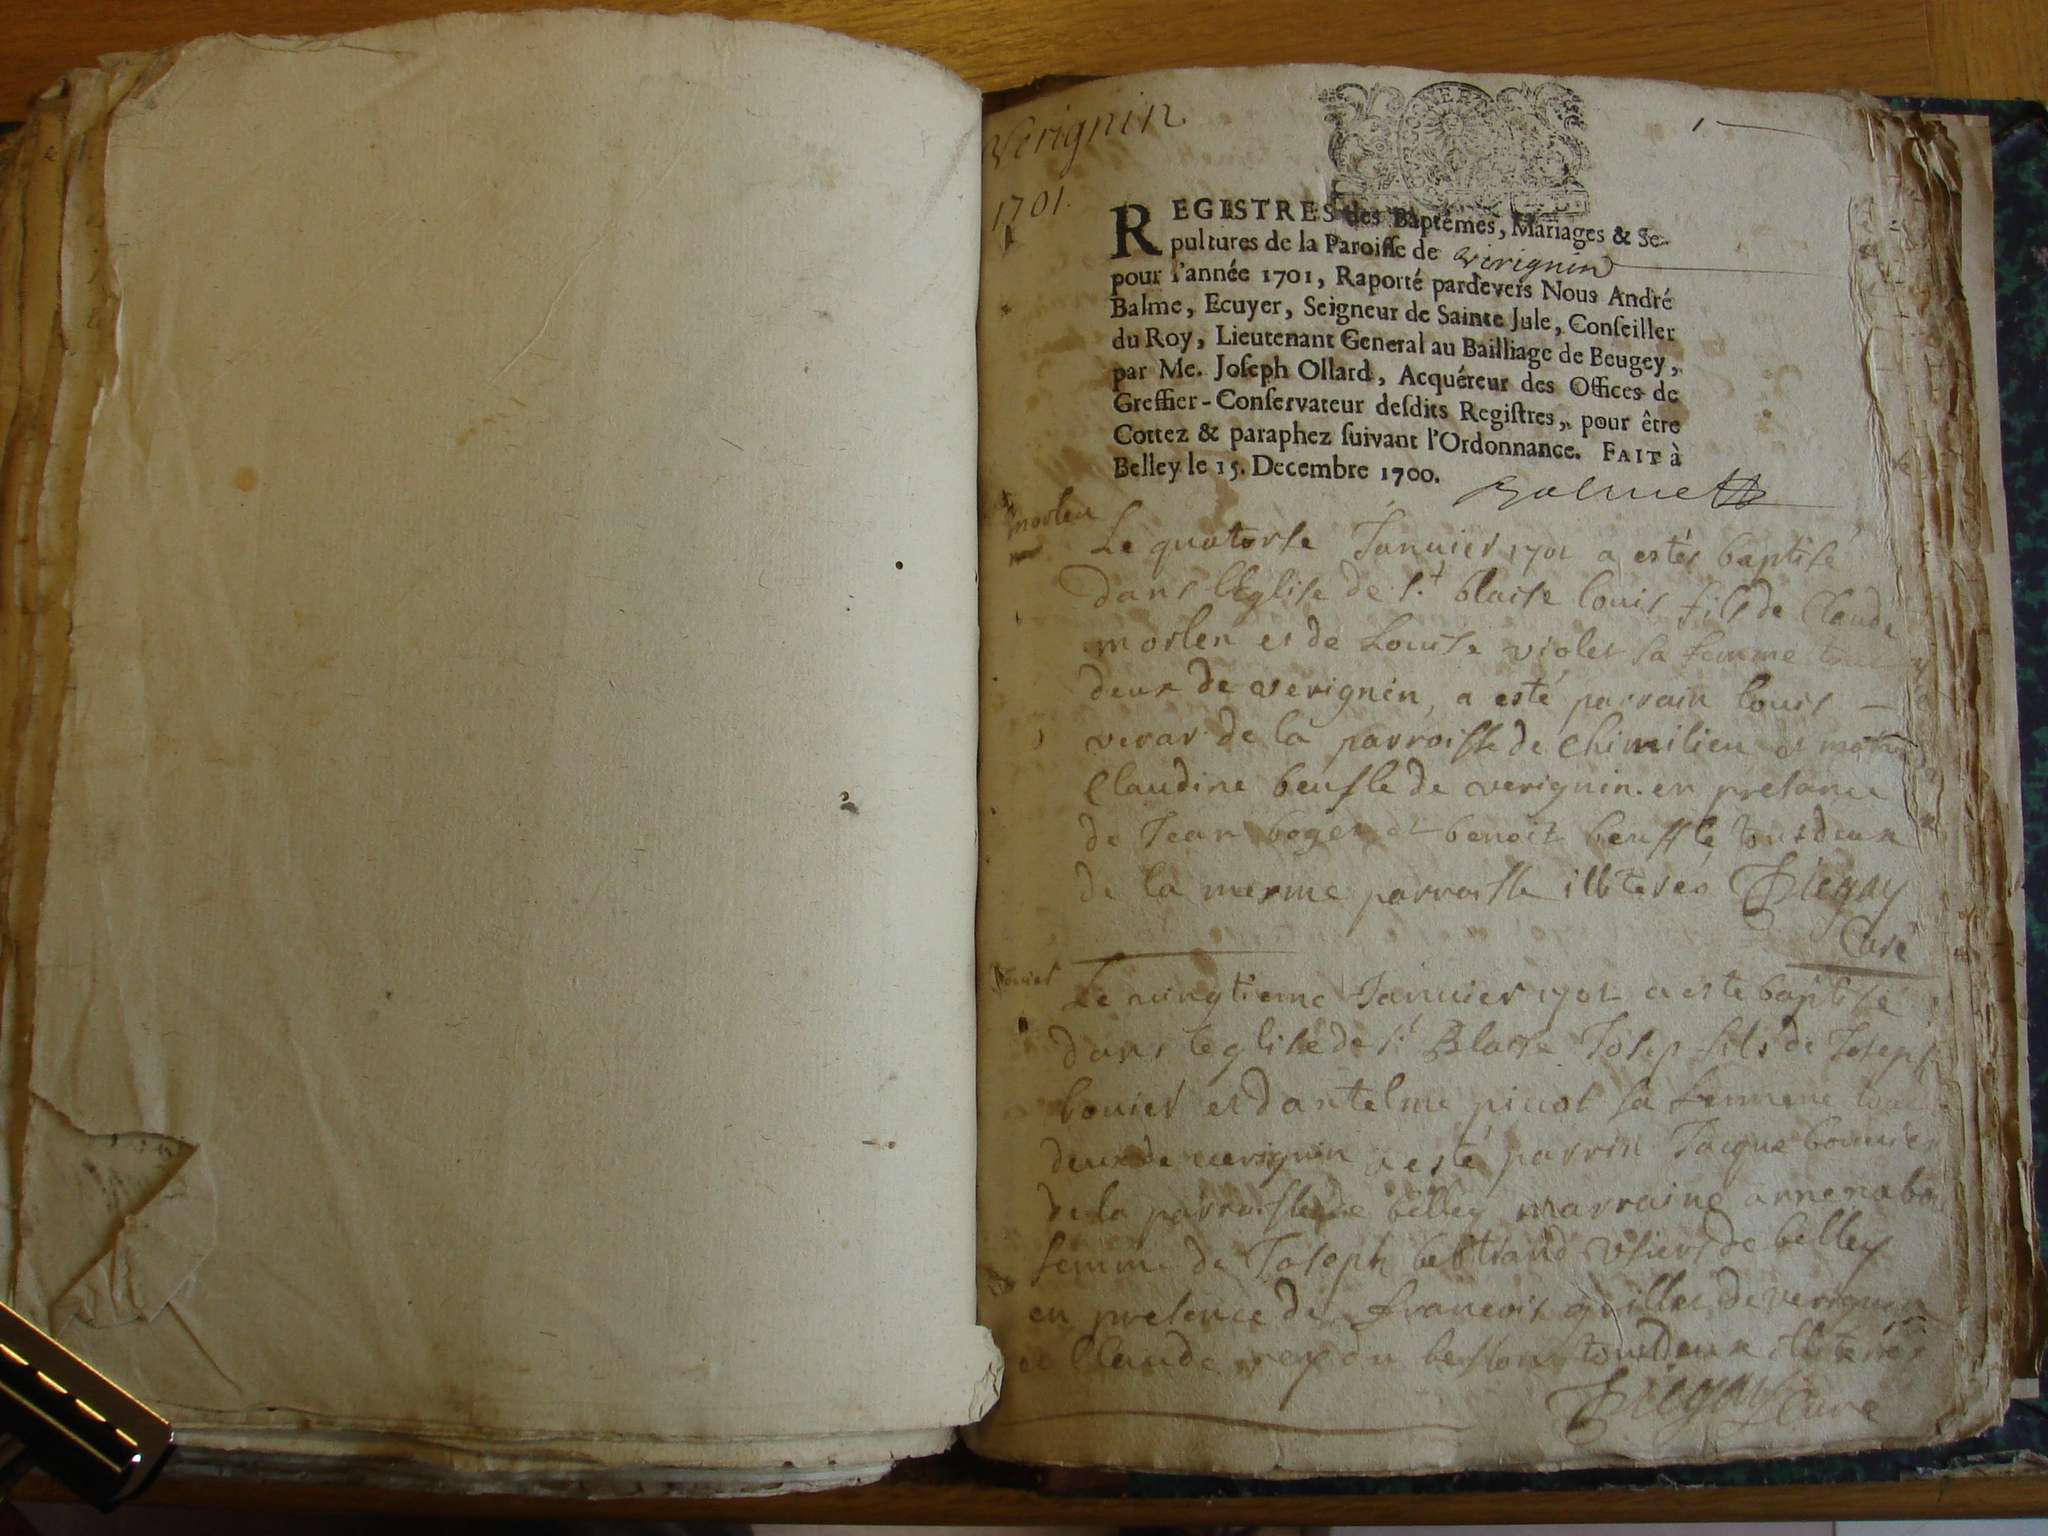 Verignin
1701.
1
REGISTRES des Baptémes, Mariages & Se-
pultures de la Paroisse de verignin
pour l'année 1701, Raporté pardevers Nous André
Balme, Ecuyer, Seigneur de Sainte Jule, Conseiller
du Roy, Lieutenant General au Bailliage de Beugey,
par Me. Joseph Ollard, Acquéreur des Offices de
Greffier-Conservateur desdits Registres, pour être
Cottez & paraphez suivant l'Ordonnance. FAIT à
Belley le 15. Decembre 1700.
morlen
Le quatorse Januier 1701 a estés baptisé
dans l'Eglise de st blaise louis fils de Claude
morlen et de Louise violet sa femme tous
deux de verignin, a esté parrain louis
verar de la parroisse de Chimilieu et
Claudine beufle de verignin. en presance
de Jean boget et benoit beuffle tous deux
de la mesme parroisse
Curé
bouier
Le vingtieme Januier 1701 a este baptisé
dans leglise de st Blaise Josep fils de Joseph
bouier et dantelme picot sa femme tous
deux de verignin a esté parrin Jacque bouuier
de la parroisse de belley marraine anne
femme de Joseph bertrand de belley
en presence de francois de verignin
et Claude rey du tous deux
Curé